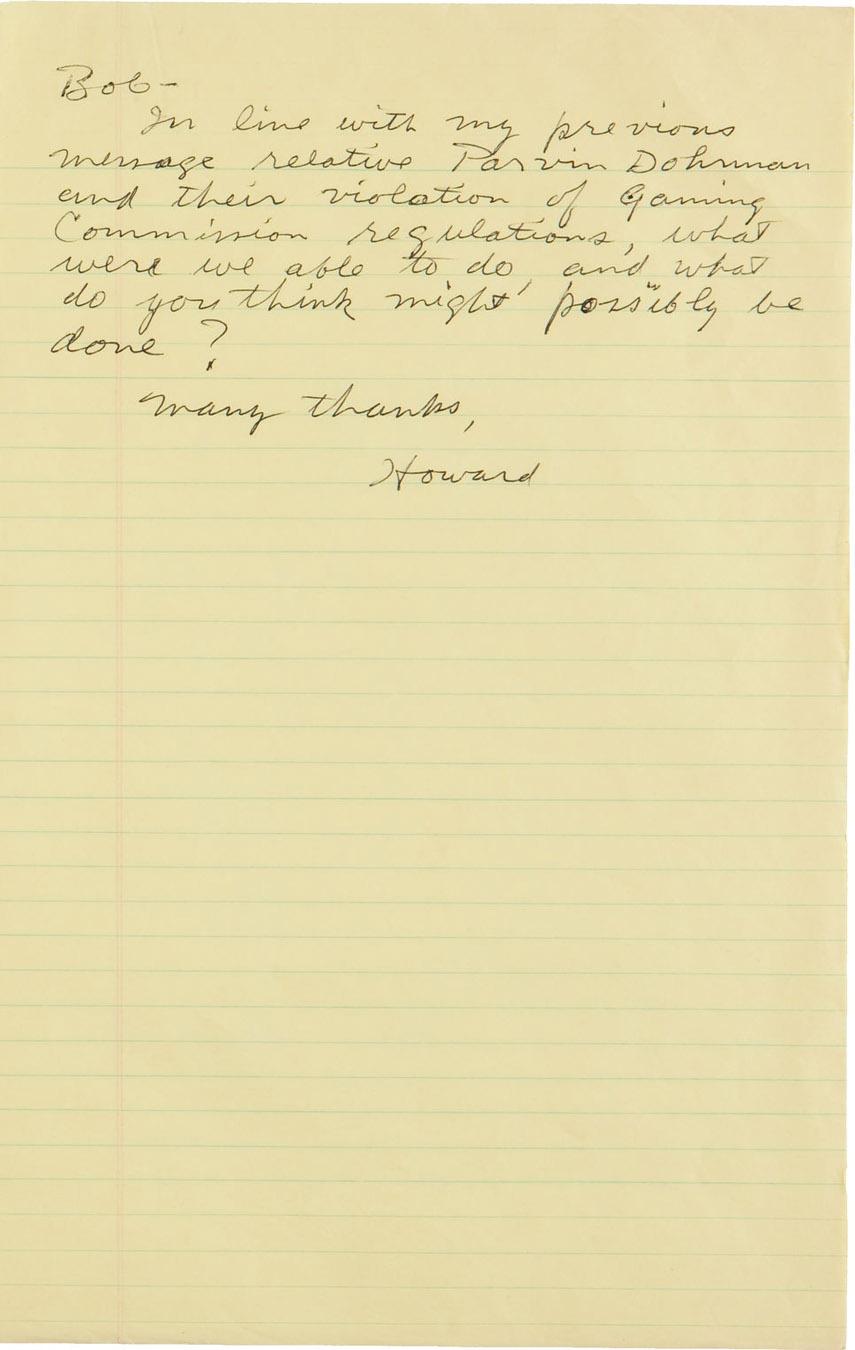 Bob-
In line with my previous
message relative Parvin Dohrman
and their violation of Gaming
Commission regulations, what
were we able to do, and what
do you think might possibly be
done ?
Many thanks,
Howard